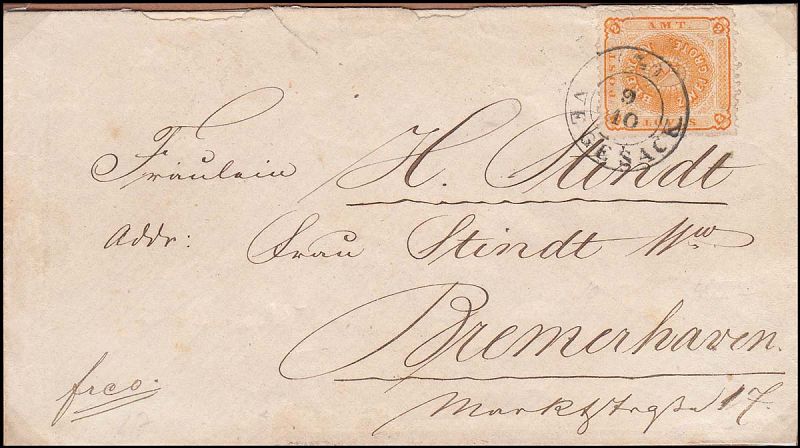 AMT.
VEGESACK
9
10
Fräulein H. Stindt
Addr: Frau Stindt Ww
Bremerhaven.
frco.
Marktstraße 17.